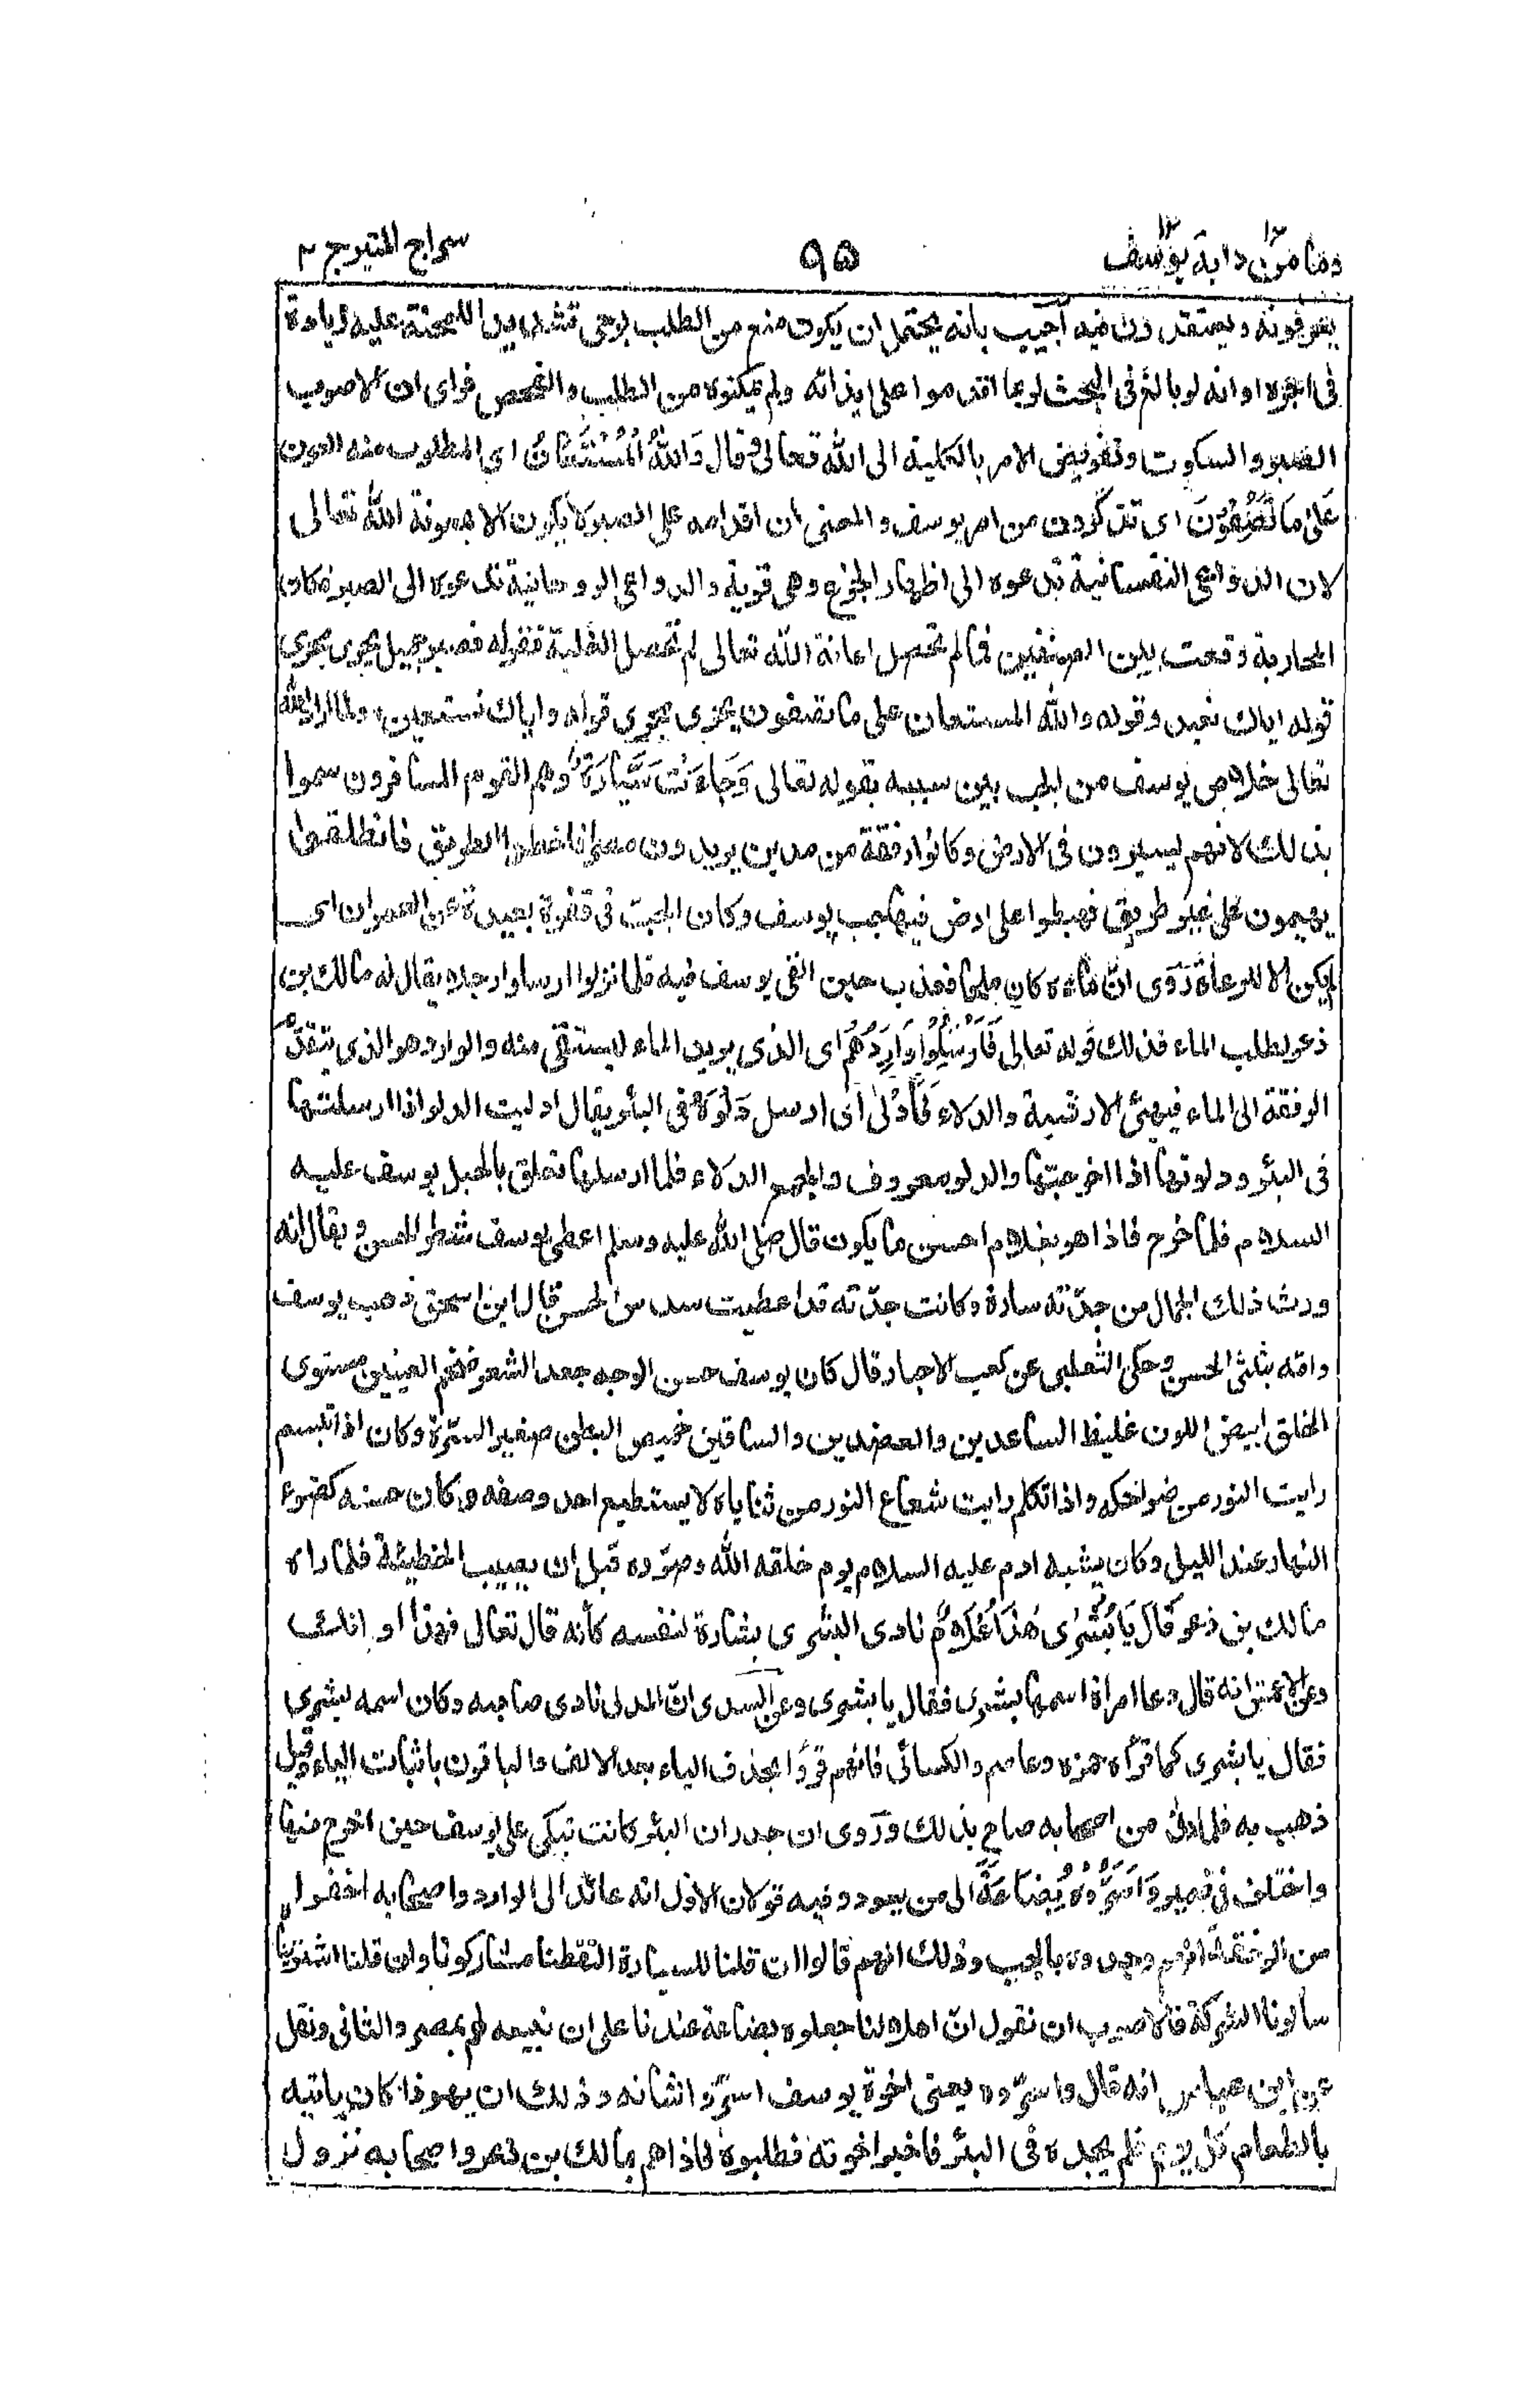 وما من دابة ١٢ يوسف ١٢ ٩۵ سراج المنير ج ٢
يعرفونه ويعتقدون فيه اجيب بانه يحتمل ان يكون منع من الطلب بوحى تشديدا للمحنة عليه وزيادة
فى اجره او انه لو بالغ فى البحث لربما اقدموا على ايذائه ولم يمكنوه من الطلب والفحص فراى ان الاصوب
الصبر والسكوت وتفويض الامر بالكلية الى الله تعالى وقال وَاللّٰهُ الْمُسْتَعَانُ اى المطلوب منه العون
عَلٰى مَا تَصِفُوْنَ اى تذكرون من امر يوسف والمعنى ان اقدامه على الصبر لا يكون الا بمعونة الله تعالى
لان الدواعى النفسانية تدعوه الى اظهار الجزع وهى قوية والدواعى الروحانية تدعوه الى الصبر فكان
المحاربة وقعت بين الصنفين فما لم تحصل اعانة الله تعالى لم تحصل الغلبة فقوله فصبر جميل يجرى مجرى
قوله اياك نعبد وقوله والله المستعان على ما تصفون يجرى مجرى قوله واياك نستعين ولما اراد الله
تعالى خلاص يوسف من الجب بين سببه بقوله تعالى وَجَاءَتْ سَيَّارَةٌ وهم القوم المسافرون سموا
بذلك لانهم يسيرون فى الارض وكانوا رفقة من مدين يريدون مصر فاخطؤا الطريق فانطلقوا
يهيمون على غير طريق فهبطوا على ارض فيها جب يوسف وكان الجب فى قفرة بعيدة عن العمران اى
لم يكن الا للرعاة رَوى انّ ماءه كان ملحا فعذب حين القى يوسف فيه فلما نزلوا ارسلوا رجلا يقال له مالك بن
ذعر لطلب الماء فذلك قوله تعالى فَاَرْسَلُوْا وَارِدَهُمْ اى الذى يريد الماء ليستقى منه والوارد هو الذى يتقدّم
الرفقة الى الماء فيهيئ الارشية والدلاء فَاَدْلٰى اى ارسل دَلْوَهٗ فى البئر يقال ادليت الدلو اذا ارسلتها
فى البئر ودلوتها اذا اخرجتها والدلو معروف والجمع الدلاء فلما ارسلها تعلق بالحبل يوسف عليه
السلام فلما خرج فاذا هو بغلام احسن ما يكون قال صلى الله عليه وسلم اعطى يوسف شطر الحسن ويقال انه
ورث ذلك الجمال من جدّته سارة وكانت جدّته قد اعطيت سدس الحسن قال ابن اسحق ذهب يوسف
وامّه بثلثى الحسن وحكى الثعلبى عن كعب الاحبار قال كان يوسف حسن الوجه جعد الشعر ضخم العينين مستوى
الخلق ابيض اللون غليظ الساعدين والعضدين والساقين خميص البطن صغير السرّة وكان اذا تبسم
رايت النور من ضواحكه واذا تكلم رايت شعاع النور من ثناياه لا يستطيع احد وصفه وكان حسنه كضوء
النهار عند الليل وكان يشبه ادم عليه السلام يوم خلقه الله وصوّره قبل ان يصيب الخطيئة فلما راه
مالك بن ذعر قَالَ يَا بُشْرٰى هٰذَا غُلَامٌ نادى البشرى بشارة لنفسه كأنه قال تعالى فهذا اوانك
وعن الاعمش انه قال دعا امرأة اسمها بشرى فقال يا بشرى وعن السدى انّ المدلى نادى صاحبه وكان اسمه بشرى
فقال يا بشرى كما قرأه حمزه وعاصم والكسائى فانهم قرؤا بحذف الياء بعد الالف والباقون باثبات الياء وقيل
ذهب به فلما دنى من اصحابه صاح بذلك ورَوى ان جدران البئر كانت تبكى على يوسف حين اخرج منها
واختلف فى ضمير وَاَسَرُّوْهُ بِضَاعَةً الى من يعود وفيه قولان الاوّل انه عائد الى الوارد واصحابه اخفوا
من الرفقة انهم وجدوه بالجب وذلك انهم قالوا ان قلنا للسيارة التقطناه شاركونا وان قلنا اشتريناه
سألونا الشركة فالاصوب ان نقول انّ اهل الماء جعلوه بضاعة عندنا على ان نبيعه لهم بمصر والثانى ونقل
عن ابن عباس انه قال واسرّوه يعنى اخوة يوسف اسرّوا شانه وذلك ان يهوذا كان ياتيه
بالطعام كل يوم فلم يجده فى البئر فاخبر اخوته فطلبوه فاذاهم بمالك بن ذعر واصحابه نزول